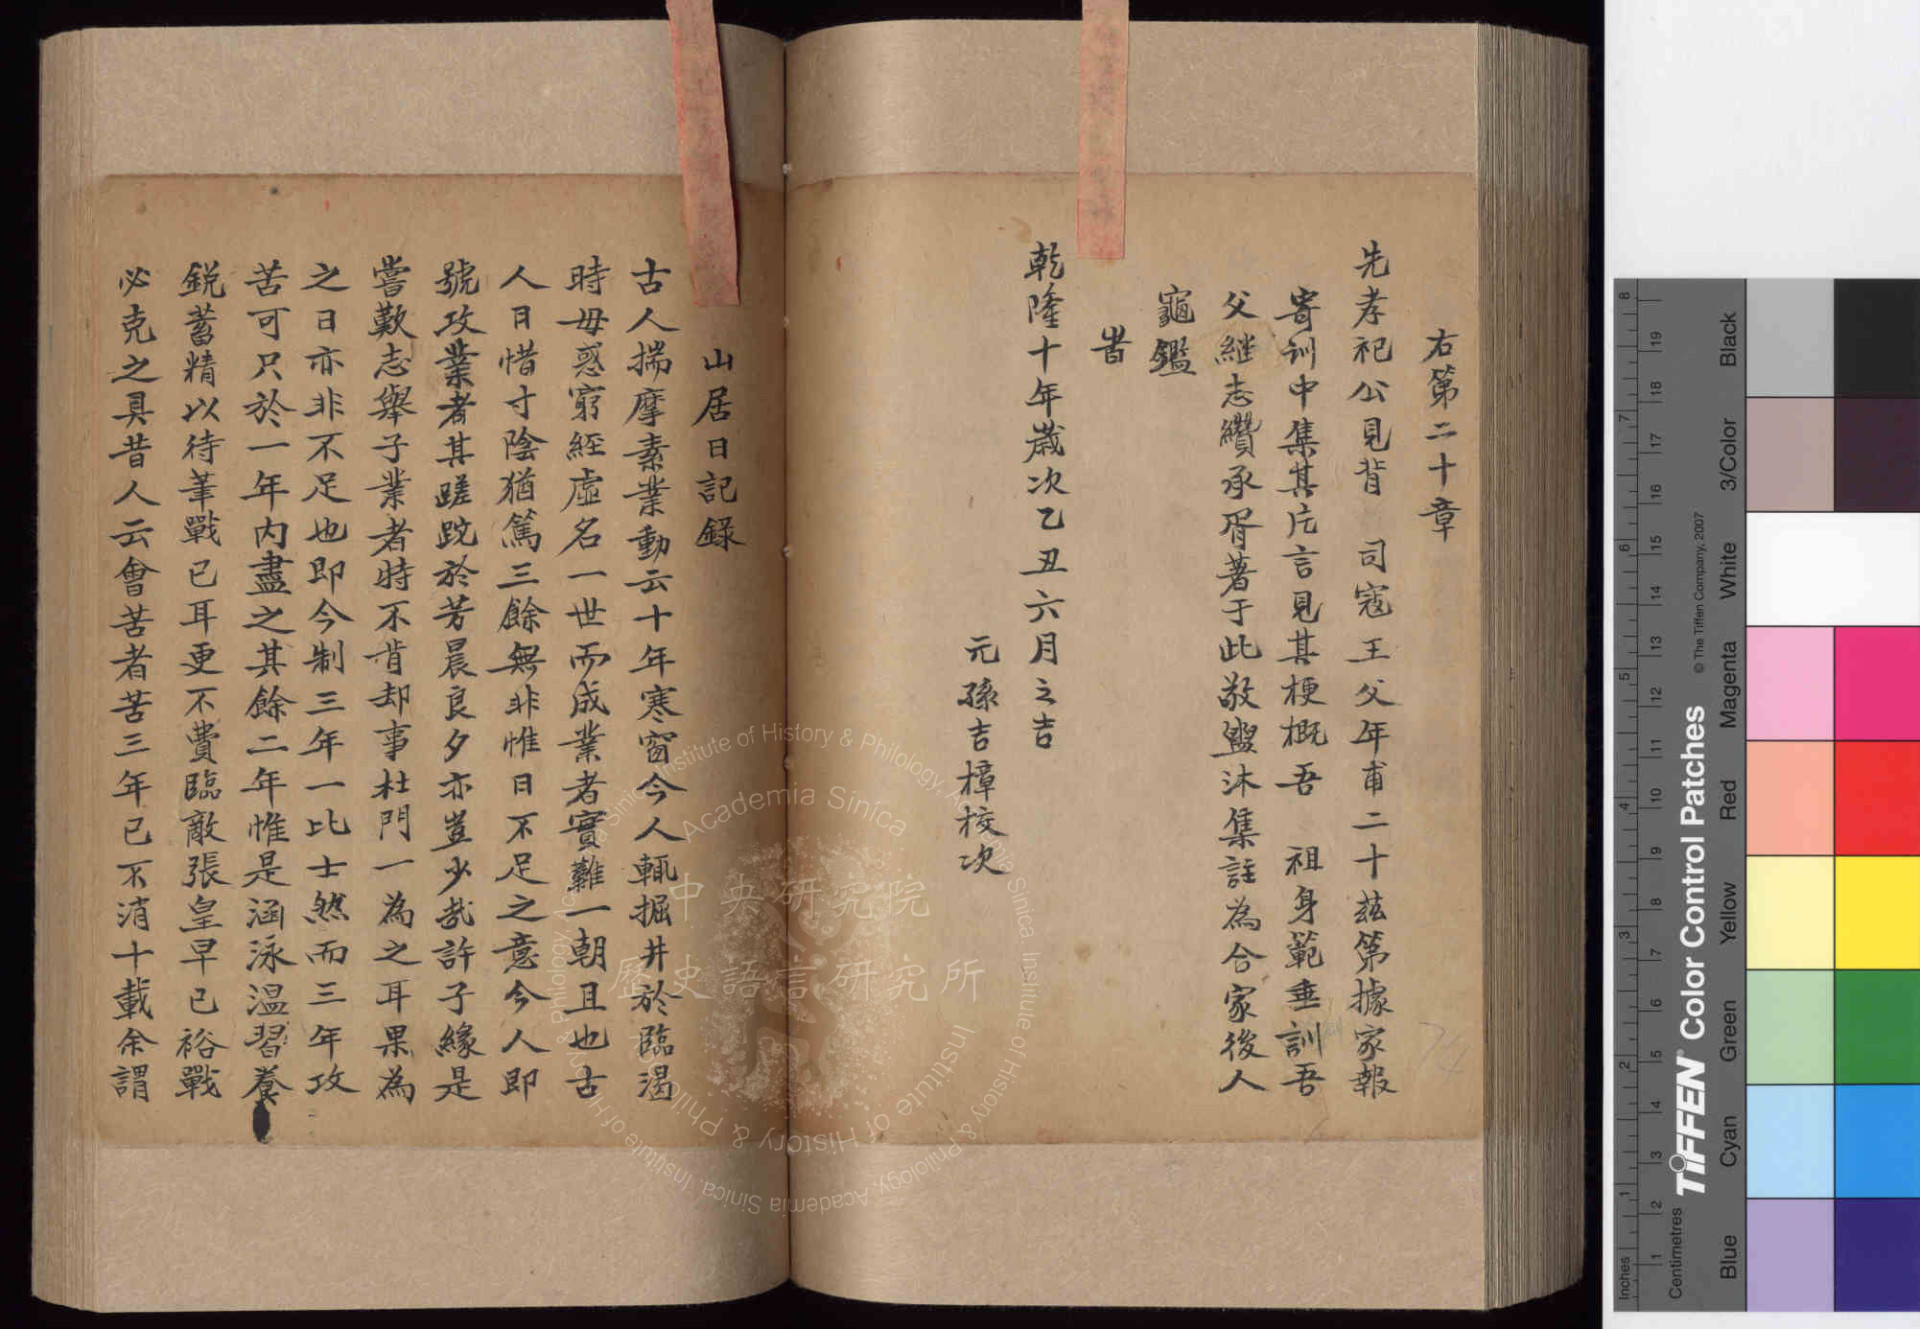 右第二十章
先孝祀公見背 司寇王父年甫二十茲第據家報
寄訓中集其片言見其梗概吾 祖身範垂訓吾
父繼志纘承胥著于此敬盥沐集註為合家後人
龜鑑
旹
乾隆十年歲次乙丑六月之吉
元孫吉樟校次
山居日記錄
古人揣摩素業動云十年寒窗今人輒掘井於臨渴
時毋惑窮經虛名一世而成業者實難一朝且也古
人日惜寸陰猶篤三餘無非惟日不足之意今人即
號攻業者其蹉跎於芳晨良夕亦豈少哉許子緣是
嘗歎志舉子業者特不肯却事杜門一為之耳果為
之日亦非不足也即今制三年一比士然而三年攻
苦可只於一年內盡之其餘二年惟是涵泳溫習養
銳蓄精以待筆戰已耳更不費臨敵張皇早已裕戰
必克之具昔人云會苦者苦三年已不消十載余謂
中央研究院
歷史語言研究所
Academia Sinica
Institute of History & Philology
Institute of History & Philology, Academia Sinica
Inches
Centimetres
TIFFEN Color Control Patches
© The Tiffen Company, 2007
Blue
Cyan
Green
Yellow
Red
Magenta
White
3/Color
Black